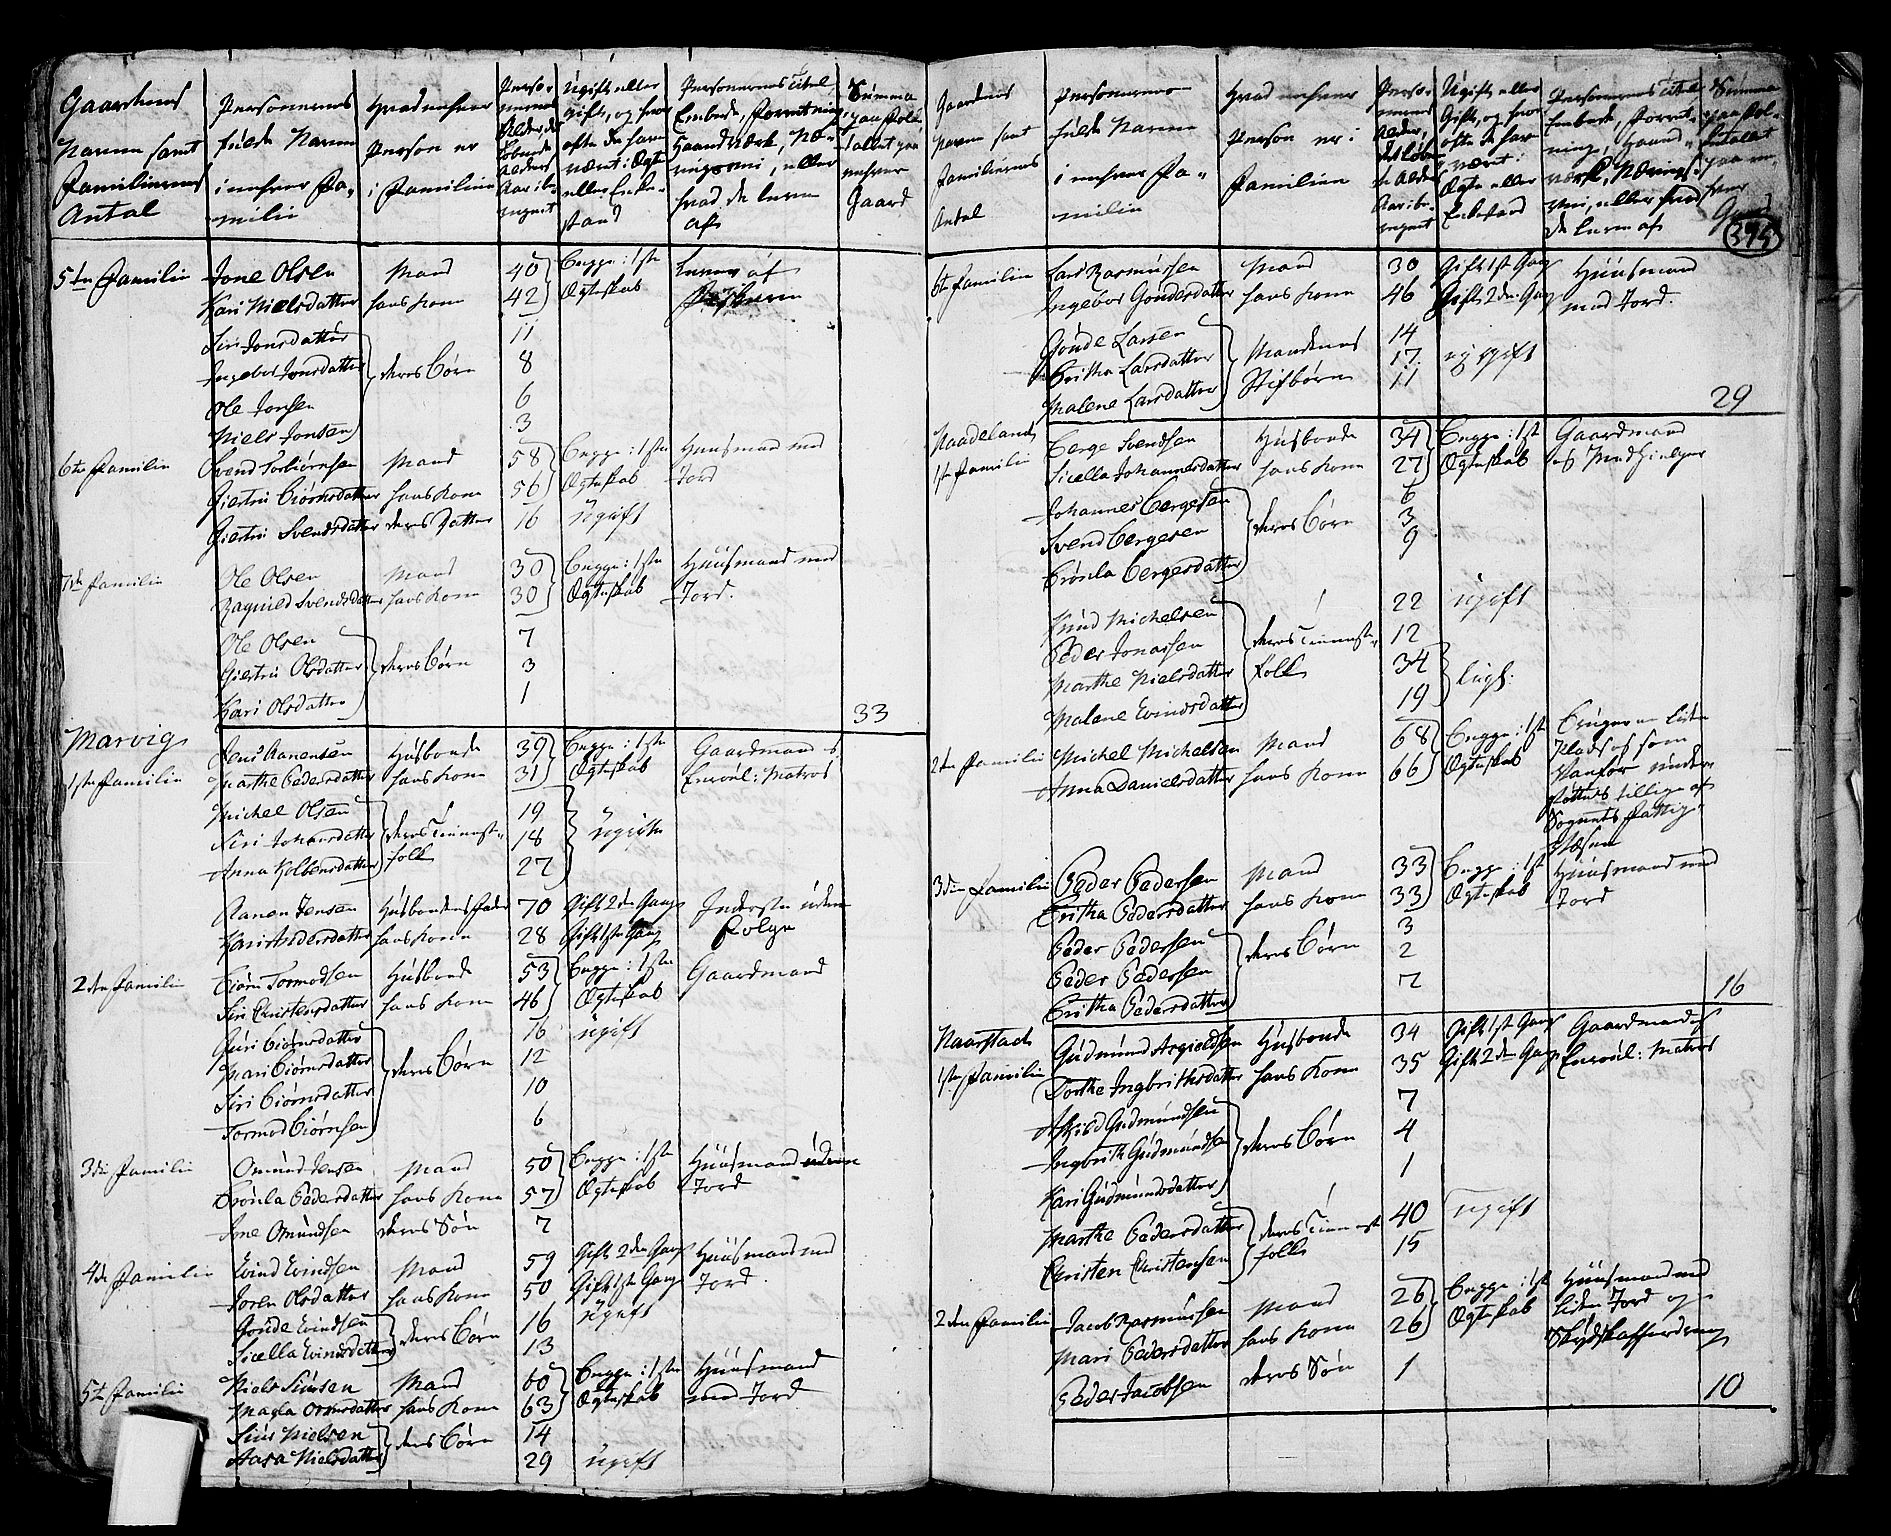 Gaardenes Navne samt Familiernes Antal
Personernes fulde Navne i enhver Familie
Hvad enhver Person er i Familien
Personernes Alder, det løbende Alders Aar ibereignet
Ugifte eller gifte, og hvor ofte de have været i Ægte eller Enkestand
Personernes Titel, Embede, Forretning, Haandværk, Næringsvei, eller hvad de leve af
Summa paa Folketallet paa enhver Gaard
5te Familie Jone Olsen Mand 40 Begge i 1ste Lever af
Kari Nielsdatter hans Kone 42 Ægteskab Fiskerie
Siri Jonsdatter 11
Ingebor Jonsdatter deres Børn 8
Ole Jonsen 6
Niels Jonsen 3
6te Familie Svend Torbiørnsen Mand 58 Begge i 1ste Huusmand med
Giertru Biørnsdatter hans Kone 56 Ægteskab Jord
Giertru Svendsdatter deres Datter 16 ugift
7de Familie Ole Olsen Mand 30 Begge i 1ste Huusmand med
Ragnild Svendsdatter hans Kone 30 Ægteskab Jord.
Ole Olsen 7
Giertru Olsdatter deres Børn 3
Kari Olsdatter 1
33
Marvig Jens Aanensen Husbonde 39 Begge i 1ste Gaardmand og
1ste Familie Marthe Pedersdatter hans Kone 31 Ægteskab Enroul: Matros
Michel Olsen 19
Siri Johansdatter deres Tienest- 18 ugifte
Anna Kolbensdatter folk 27
Aanen Jensen Husbondens Fader 70 Gift 2den Gang Inderste uden
Kari Andersdatter hans Kone 28 Gift 1ste Gang Følge
2den Familie Biørn Tormodsen Husbonde 53 Begge i 1ste Gaardmand
Siri Christensdatter hans Kone 46 Ægteskab
Guri Biørnsdatter 16 ugift
Mari Biørnsdatter deres Børn 12
Siri Biørnsdatter 10
Tormod Biørnsen 6
3die Familie Omund Jensen Mand 50 Begge i 1ste Huusmand uden
Brønla Pedersdatter hans Kone 57 Ægteskab Jord
Jone Omundsen deres Søn 7
4de Familie Evind Evindsen Mand 59 Gift 2den Gang Huusmand med
Joren Olsdatter hans Kone 50 Gift 1ste Gang Jord
Gonde Evindsen deres Børn 16 ugift
Sicella Evindsdatter 13
5te Familie Niels Siursen Mand 60 Begge i 1ste Huusmand
Magla Ormsdatter hans Kone 63 Ægteskab med Jord
Siur Nielsen deres Børn 14
Aasa Nielsdatter 29 ugift
Gaardenes Navne samt Familiernes Antal
Personernes fulde Navne i enhver Familie
Hvad enhver Person er i Familien
Personernes Alder, det løbende Alders Aar ibereignet
Ugifte eller Gifte, og hvor ofte de har været i Ægte eller Enkestand
Personernes Titel, Embede, Forretning, Haandværk, Næringsvei, eller hvad de leve af
Summa paa Folketallet paa enhver Gaard
395
6te Familie Lars Rasmussen Mand 30 Gift 1ste Gang Huusmand
Ingebor Gondesdatter hans Kone 46 Gift 2den Gang med Jord.
Gonde Larsen 14
Britha Larsdatter Mandens 17 ugift
Malene Larsdatter Stifbørn 11
29
Naadeland Berge Svendsen Husbonde 34 Begge i 1ste Gaardmand
1ste Familie Sicella Johannesdatter hans Kone 27 Ægteskab
Johannes Bergesen 6
Svend Bergesen deres Børn 3
Brønla Bergesdatter 9
Knud Michelsen 22 ugift
Peder Jonassen deres Tienest- 12
Marthe Nielsdatter folk 34
Malene Evindsdatter 19
2den Familie Michel Michelsen Mand 68 Begge i 1ste Bruger en liden
Anna Danielsdatter hans Kone 66 Ægteskab Plads som
tillige af
Sognets Fattig-
Kasse
3die Familie Peder Pedersen Mand 33 Begge i 1ste Huusmand med
Britha Pedersdatter hans Kone 33 Ægteskab Jord
Peder Pedersen 3
Peder Pedersen deres Børn 2
Britha Pedersdatter 7
16
Naarstad Gudmund Asgieldsen Husbonde 34 Gift 1ste Gang Gaardmand og
1ste Familie Dorthe Ingbrithsdatter hans Kone 35 Gift 2den Gang Enroul: Matros
Gudmundsen 7
Ingbrith Gudmundsen deres Børn 4
Kari Gudmundsdatter 1
Marthe Pedersdatter deres Tienest- 40 ugift
Christen Christensen folk 15
2den Familie Jacob Rasmussen Mand 26 Begge i 1ste Huusmand med
Mari Pedersdatter hans Kone 26 Ægteskab liden Jord og
Peder Jacobsen deres Søn 1 Skydskaffordring
10